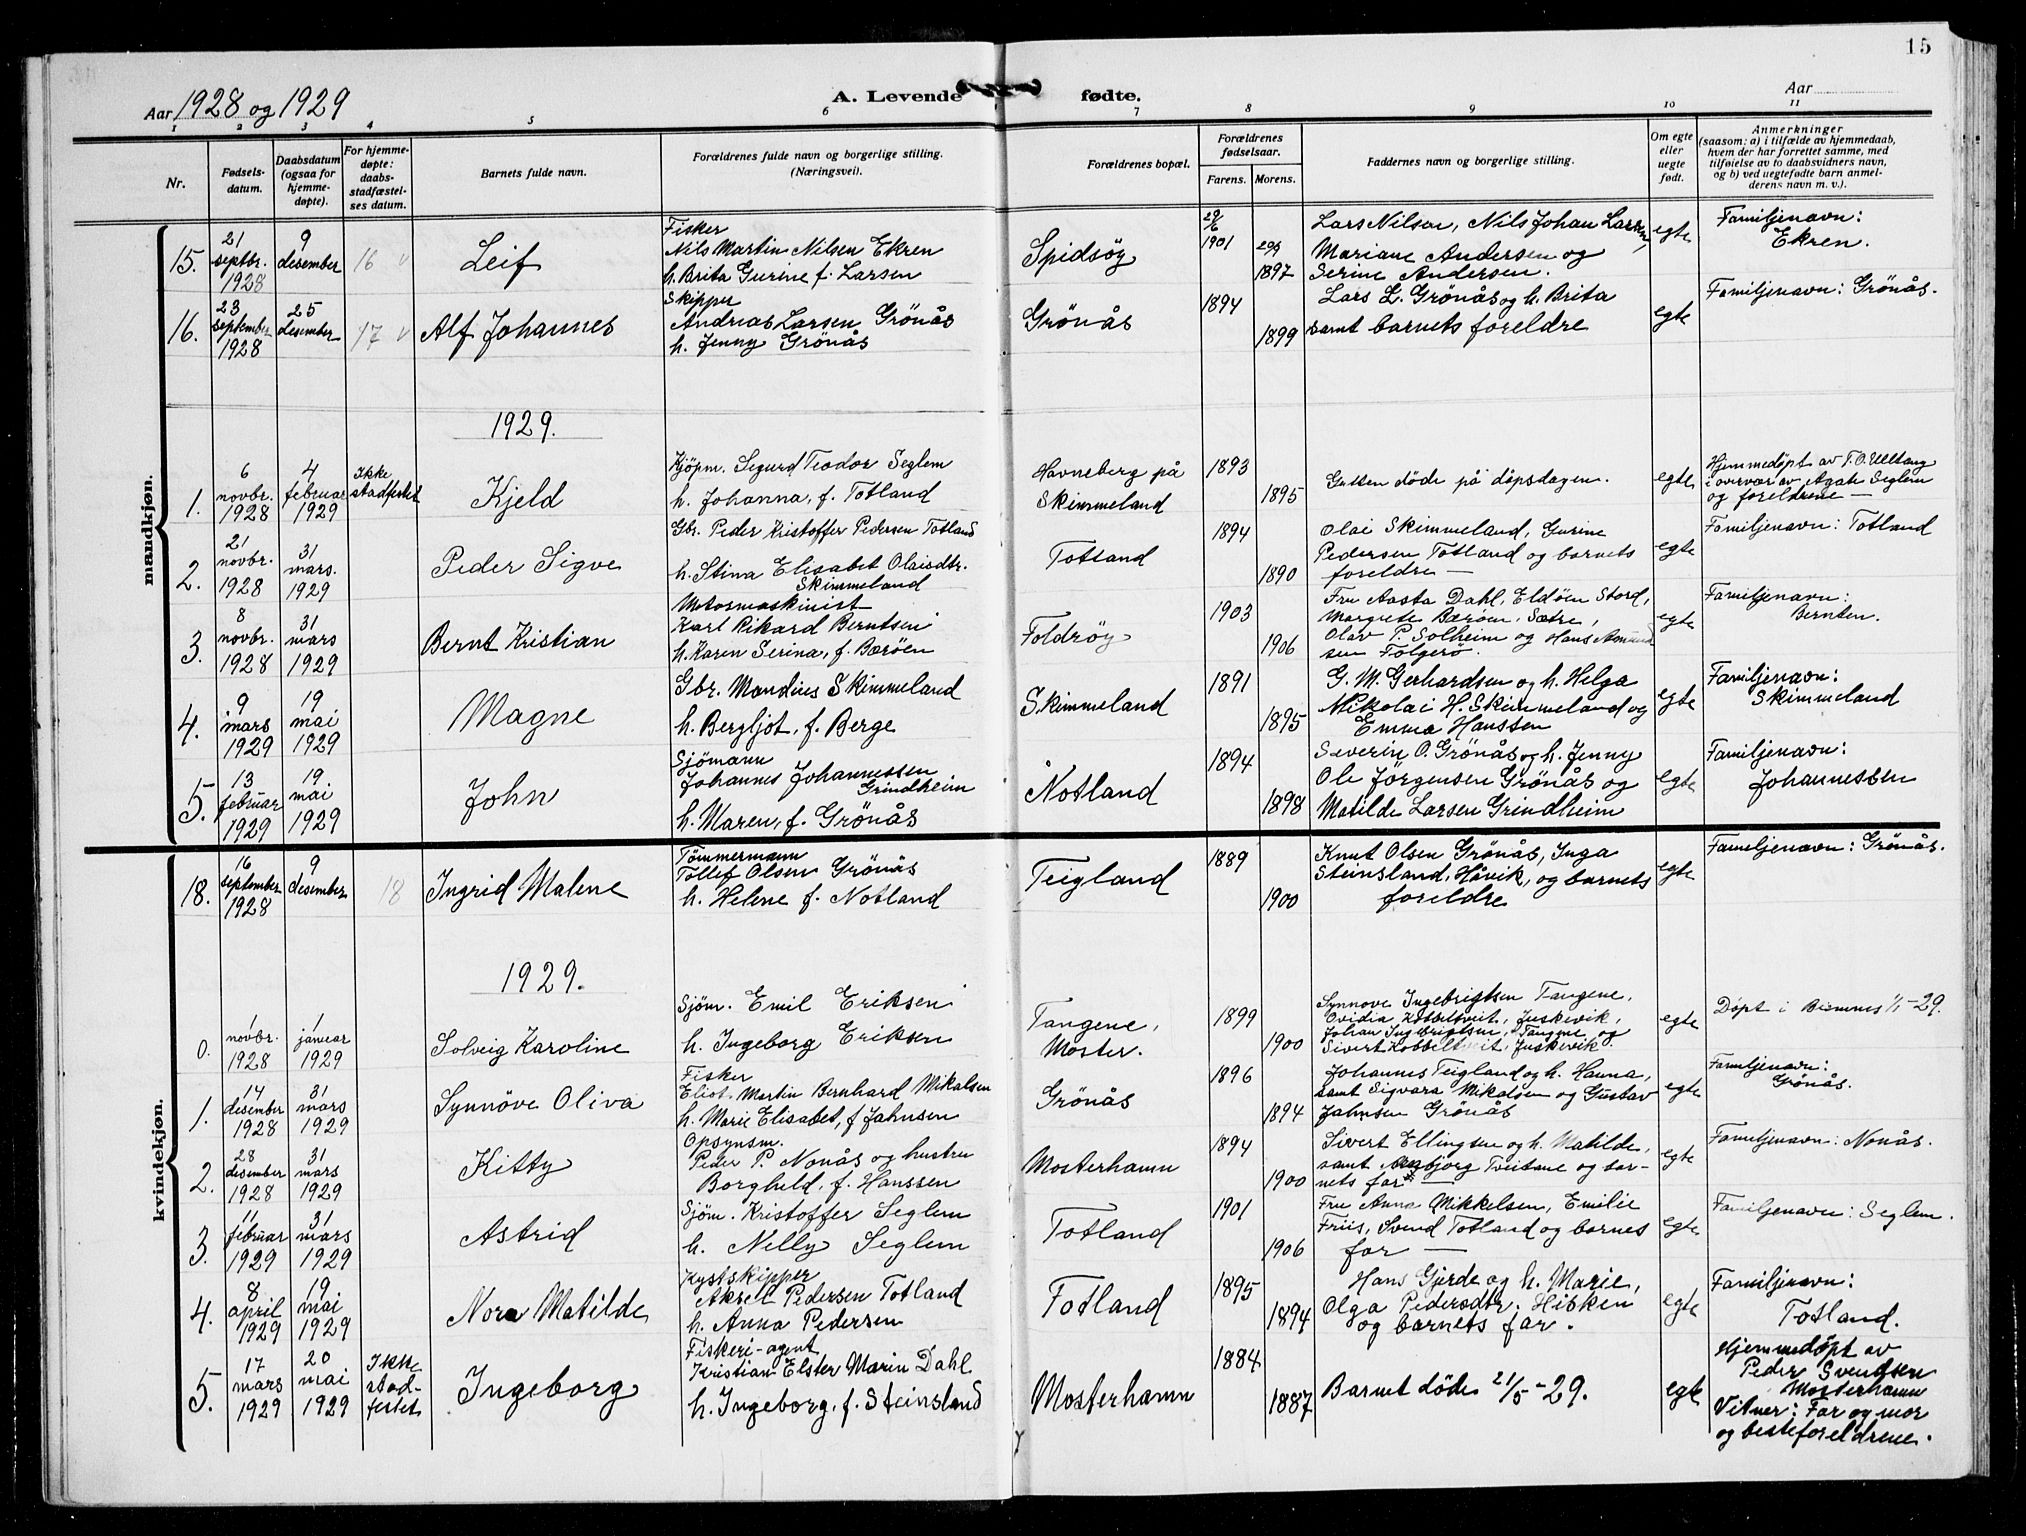 15
Aar 1928 og 1929
A. Levende fødte.
Aar
1 2 3 4 5 6 7 8 9 10 11
Nr.
Fødsels-
datum.
Daabsdatum
(ogsaa for
hjemme-
døpte).
For hjemme-
døpte:
daabs-
stadfæstel-
ses datum.
Barnets fulde navn.
Forældrenes fulde navn og borgerlige stilling.
(Næringsvei).
Forældrenes bopæl.
Forældrenes
fødselsaar.
Farens. Morens.
Faddernes navn og borgerlige stilling.
Om egte
eller
uegte
født.
Anmerkninger
(saasom: a) i tilfælde av hjemmedaab,
hvem der har forrettet samme, med
tilføielse av to daabsvidners navn,
og b) ved uegtefødte barn anmel-
derens navn m. v.).
mandkjøn.
15.
21
septbr.
1928
9
desember
16
Leif
Fisker
Nils Martin Nilsen Ekren
h. Brita Gurine f. Larsen
Spidsöy
29/6
1901
1897
Lars Nilsen, Nils Johan Larsen,
Mariane Andersen og
Serine Andersen.
egte
Familjenavn:
Ekren.
16.
23
september
1928
25
desember
17
Alf Johannes
Skipper
Andreas Larsen Grönås
h. Jenny Grönås
Grönås
1894
1899
Lars L. Grönås og h. Brita
samt barnets foreldre
egte
Familjenavn: Grönås.
1929.
1.
6
novbr.
1928
4
februar
1929
Ikke
stadfestet
Kjeld
Kjöpm. Sigurd Teodor Seglem
h. Johanna, f. Totland
Havneberg på
Skimmeland
1893
1895
Gutten döde på döpsdagen.
egte
Hjemmedöpt av T. O. Ulltang
i overvær av Agate Seglem
og foreldrene —
2.
21
novbr.
1928
31
mars.
1929
Peder Sigve
Gbr. Peder Kristoffer Pedersen Totland
h. Stina Elisabet Olaisdtr.
Skimmeland
Totland
1894
1890
Olai Skimmeland, Gurine
Pedersen Totland og barnets
foreldre —
egte
Familjenavn: Totland
3.
8
novbr.
1928
31
mars
1929
Bernt Kristian
Motormaskinist
Karl Rikard Berntsen
h. Karen Serina, f. Bæröen
Foldröy
1903
1906
Fru Aasta Dahl, Eldöen Stord,
Margrete Bæröen, Sætre,
Olav P. Solheim og Hans Asmund
sen Folgerö.
egte
Familjenavn:
Bernten.
4.
9
mars
1929
19
mai
1929
Magne
Gbr. Mandius Skimmeland
h. Bergljot, f. Berge
Skimmeland
1891
1895
G. M. Gerhardsen og h. Helga
Nikolai H. Skimmeland og
Emma Hanssen
egte
Familjenavn:
Skimmeland
5.
13
februar
1929
19
mai
1929
John
Sjömann
Johannes Johannessen
Grindheim
h. Maren, f. Grönås
Notland
1894
1898
Severin O. Grönås og h. Jenny
Ole Jörgensen Grönås og
Matilde Larsen Grindheim
egte
Familjenavn:
Johannessen
kvindekjøn.
18.
16
september
1928
9
desember
18
Ingrid Malene
Tömmermann
Tollef Olsen Grönås
h. Helene f. Notland
Teigland
1889
1900
Knut Olsen Grönås, Inga
Steinsland, Håvik, og barnets
foreldre
egte
Familjenavn: Grönås.
1929.
0.
1
novbr.
1928
1
januar
1929
Solveig Karoline
Sjöm. Emil Eriksen
h. Ingeborg Eriksen
Tangene,
Moster.
1899
1900
Synnove Ingebrigtsen Tangene,
Ovidia Kobbeltveit, Juskevik,
Johan Ingebrigtsen, Tangene og
Sivert Kobbeltveit, Juskevik.
egte
Döpt i Bremnes 1/1-29.
1.
14
desember
1928
31
mars
1929
Synnöve Oliva
Fisker
Eliot Martin Bernhard Mikalsen
h. Marie Elisabet, f Jahnsen
Grönås
1896
1894
Johannes Teigland og h. Hanna,
samt Sigvara Mikalsen og Gustav
Jahnsen Grönås
egte
Familjenavn:
Grönås.
2.
28
desember
1928
31
mars
1929
Kitty
Opsynsm.
Peder P. Nonås og hustru
Borghild, f. Hanssen
Mosterhamn
1894
1900
Sivert Ellingsen og h. Matilde,
samt Ambjörg Tveitane og bar-
nets far —
egte
Familjenavn: Nonås.
3.
11
februar
1929
31
mars
1929
Astrid
Sjöm. Kristoffer Seglem
h. Nelly Seglem
Totland
1901
1906
Fru Anna Mikkelsen, Emilie
Friis, Svend Totland og barnets
far —
egte
Familjenavn: Seglem.
4.
8
april
1929
19
mai
1929
Nora Matilde
Kystskipper
Aksel Pedersen Totland
h. Anna Pedersen
Totland
1895
1894
Hans Gjerde og h. Marie,
Olga Pedersdtr. Hisken
og barnets far.
egte
Familjenavn:
Totland.
5.
17
mars
1929
20
mai
1929
Ikke
stad-
festet
Ingeborg
Fiskeri-agent
Kristian Elster Marin Dahl
h. Ingeborg, f. Steinsland
Mosterhamn
1884
1887
Barnet döde 21/5-29.
egte
Hjemmedöpt av
Peder Svendsen
Mosterhamn
Vitner: Far og mor
og besteforeldrene.